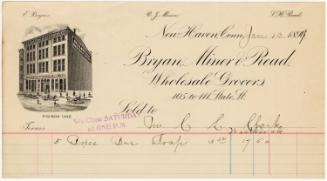 E. Bryan. R. J. Miner. S. H. Read.
New Haven, Conn., Jan 12 189
Bryan, Miner & Read,
Wholesale Grocers
165 to 171 State St.
Sold to
Mr C L Clark
We Close SATURDAY
at ONE P.M.
Terms
5 Boxes Soap 17 50